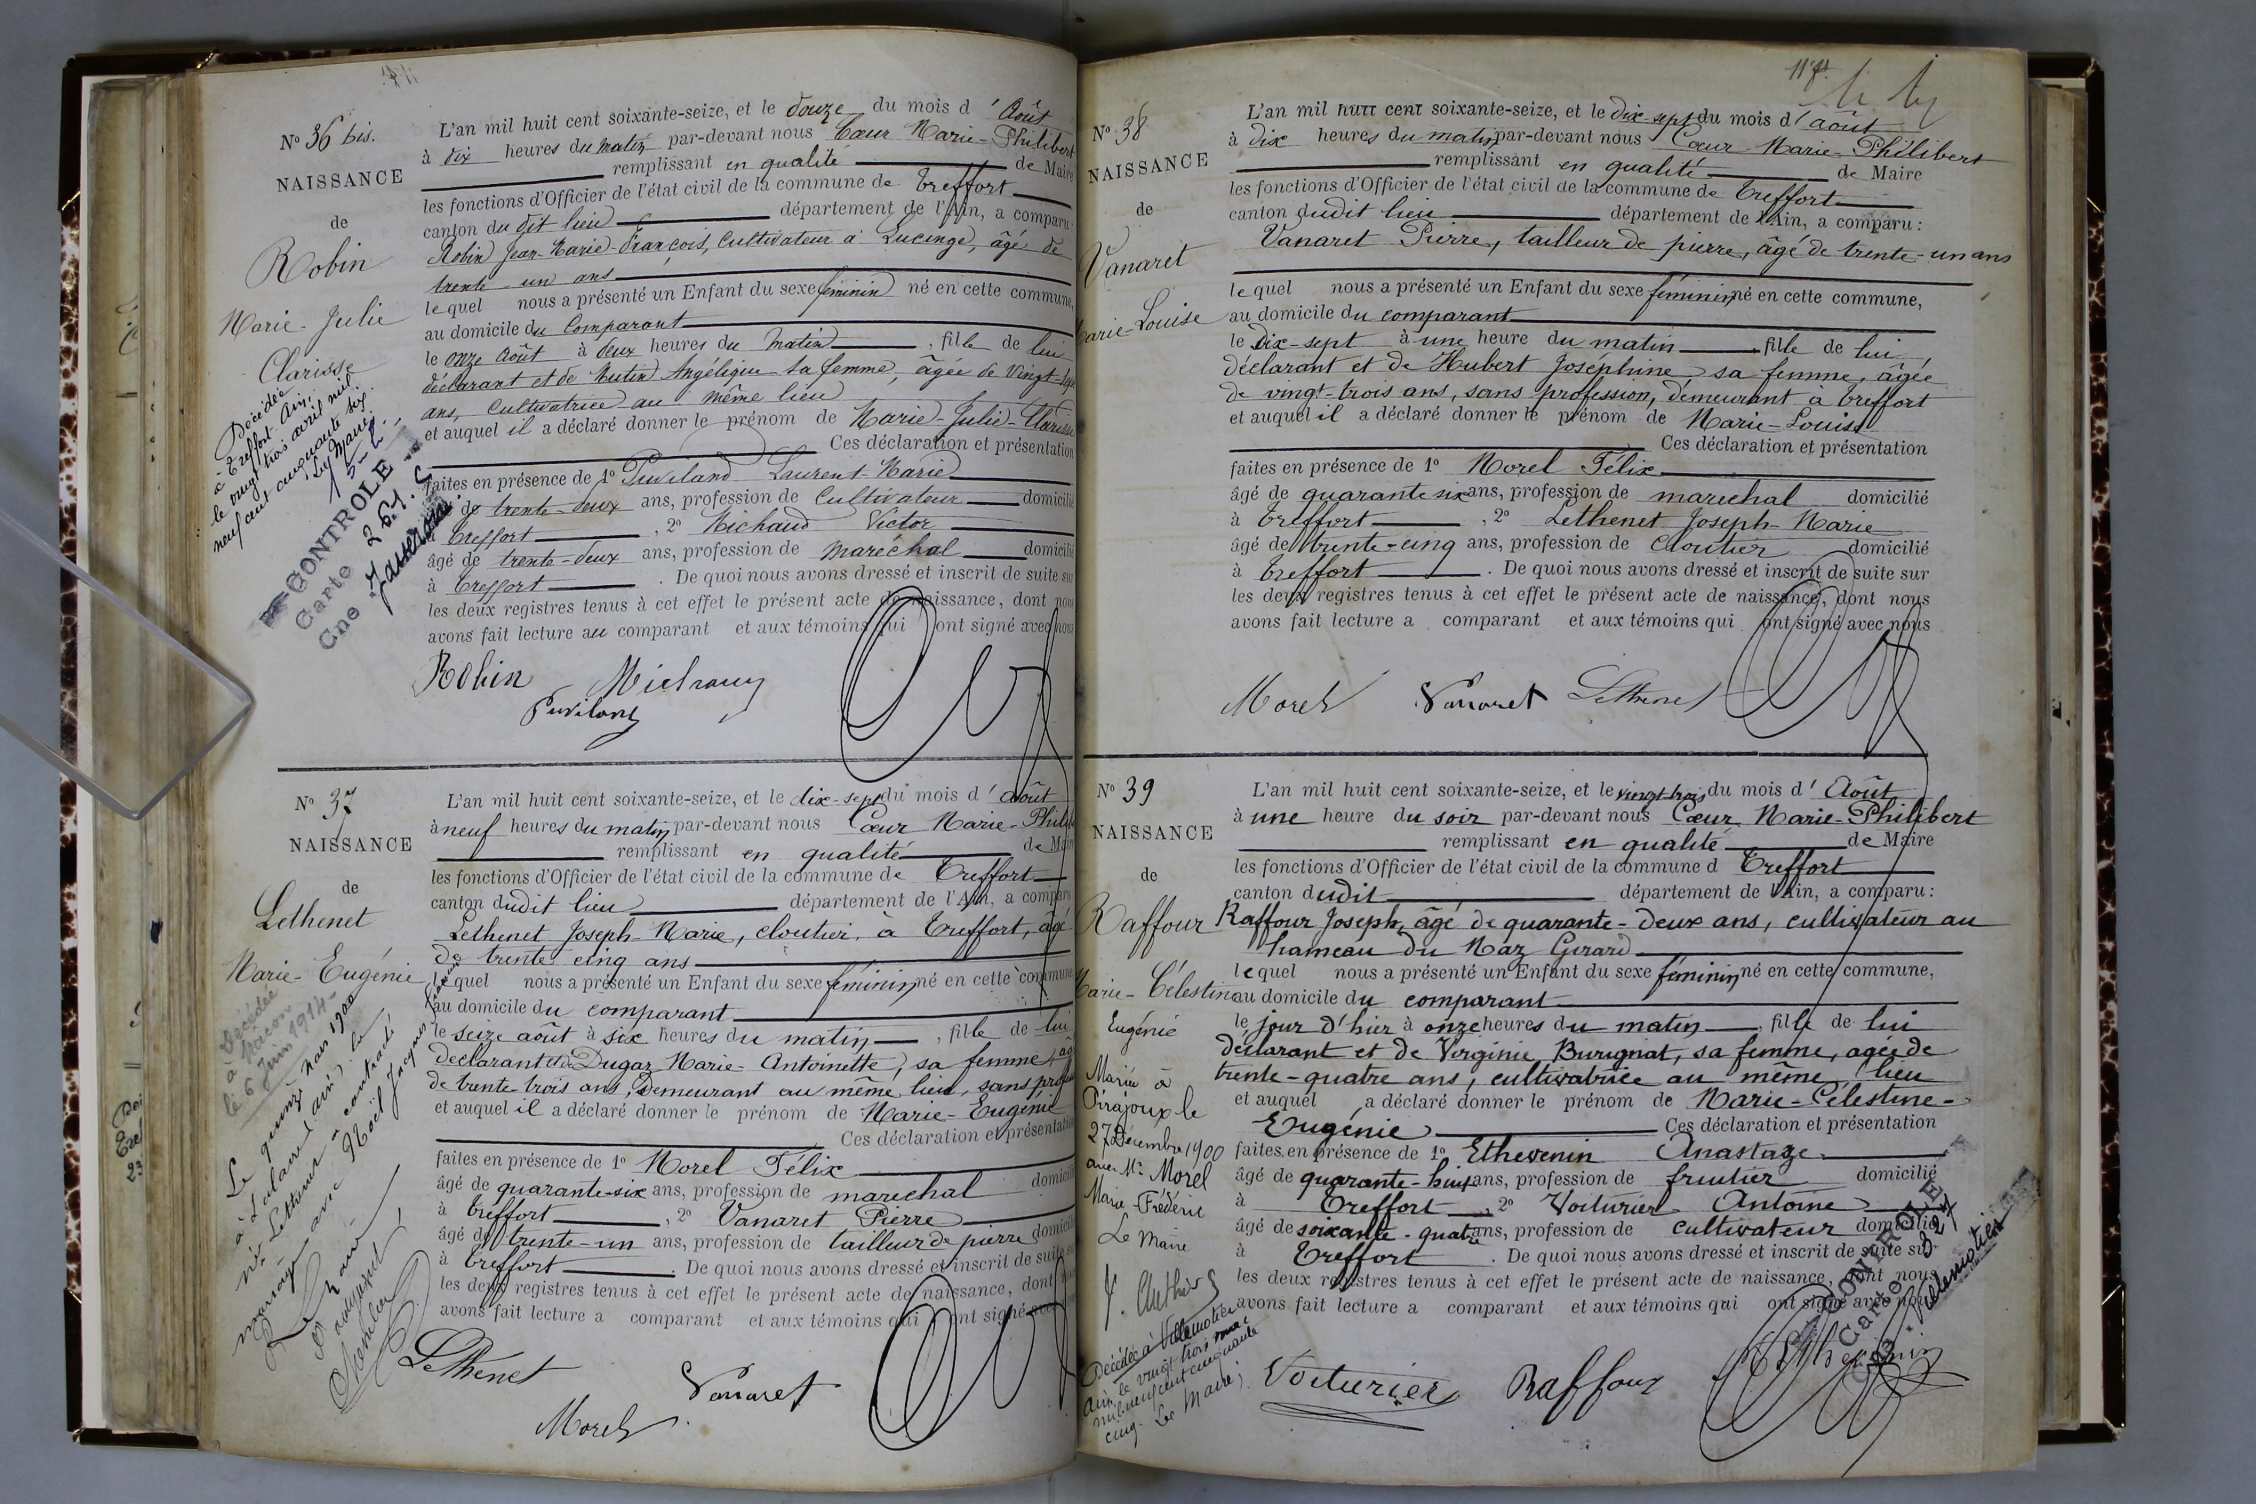 N° 36 bis.
NAISSANCE
de
Robin
Marie-Julie
Clarisse
Décédée
à Treffort Ain,
le vingt trois avril mil
neuf cent cinquante six
Le Maire,
CONTROLE
Carte 261. C
Cne Jasseron
L'an mil huit cent soixante-seize, et le douze du mois d'Août
à dix heures du matin par-devant nous Cœur Marie-Philibert
remplissant en qualité de Maire
les fonctions d'Officier de l'état civil de la commune de Treffort
canton du dit lieu département de l'Ain, a comparu:
Robin Jean-Marie-François, Cultivateur à Lucinge, âgé de
trente-un ans
lequel nous a présenté un Enfant du sexe féminin né en cette commune,
au domicile du Comparant
le onze Août à deux heures du matin, fille de lui
déclarant et de Mutin Angélique sa femme, âgée de vingt-sept
ans, Cultivatrice au même lieu
et auquel il a déclaré donner le prénom de Marie-Julie-Clarisse
Ces déclaration et présentation
faites en présence de 1° Puviland Laurent-Marie
âgé de trente-deux ans, profession de Cultivateur domicilié
à Treffort, 2° Michaud Victor
âgé de trente-deux ans, profession de Maréchal domicilié
à Treffort. De quoi nous avons dressé et inscrit de suite sur
les deux registres tenus à cet effet le présent acte de naissance, dont nous
avons fait lecture au comparant et aux témoins qui ont signé avec nous
Robin Michaud
Puviland
N° 37
NAISSANCE
de
Lethenet
Marie-Eugénie
Décédée
à Mâcon
le 6 Juin 1914
Le quinze mars 1900
mariage avec Noël Jacques
L'an mil huit cent soixante-seize, et le dix-sept du mois d'août
à neuf heures du matin par-devant nous Cœur Marie-Philib
remplissant en qualité de Maire
les fonctions d'Officier de l'état civil de la commune de Treffort
canton dudit lieu département de l'Ain, a comparu
Lethenet Joseph-Marie, cloutier, à Treffort, âgé
de trente cinq ans
lequel nous a présenté un Enfant du sexe féminin né en cette commune
au domicile du comparant
le seize août à six heures du matin, fille de lui
déclarant et de Dugaz Marie-Antoinette, sa femme, âg
de trente trois ans, Demeurant au même lieu, sans profe
et auquel il a déclaré donner le prénom de Marie-Eugénie
Ces déclaration et présentation
faites en présence de 1° Morel Félix
âgé de quarante-six ans, profession de maréchal domicilié
à Treffort, 2° Vanaret Pierre
âgé de trente-un ans, profession de tailleur de pierre domicilié
à Treffort. De quoi nous avons dressé et inscrit de suite
les deux registres tenus à cet effet le présent acte de naissance, dont
avons fait lecture a comparant et aux témoins qui ont signé
Lethenet Vanaret
Morel
N° 38
NAISSANCE
de
Vanaret
Marie-Louise
L'an mil huit cent soixante-seize, et le dix-sept du mois d'août
à dix heures du matin par-devant nous Cœur Marie-Philibert
remplissant en qualité de Maire
les fonctions d'Officier de l'état civil de la commune de Treffort
canton dudit lieu département de l'Ain, a comparu:
Vanaret Pierre, tailleur de pierre, âgé de trente-un ans
lequel nous a présenté un Enfant du sexe féminin né en cette commune,
au domicile du comparant
le Dix-sept à une heure du matin, fille de lui,
déclarant et de Hubert Joséphine sa femme, âgée
de vingt-trois ans, sans profession, demeurant à Treffort
et auquel il a déclaré donner le prénom de Marie-Louise
Ces déclaration et présentation
faites en présence de 1° Morel Félix
âgé de quarante six ans, profession de maréchal domicilié
à Treffort, 2° Lethenet Joseph-Marie
âgé de trente-cinq ans, profession de cloutier domicilié
à Treffort. De quoi nous avons dressé et inscrit de suite sur
les deux registres tenus à cet effet le présent acte de naissance, dont nous
avons fait lecture a comparant et aux témoins qui ont signé avec nous
Morel Vanaret Lethenet
N° 39
NAISSANCE
de
Raffour
Marie-Célestine
Eugénie
Mariée à
Pirajoux le
27 Décembre 1900
avec Mr Morel
Marie-Frédéric
Le Maire
Décédée à Villemotier
Ain, le vingt trois mai
mil neuf cent cinquante
cinq. Le Maire,
L'an mil huit cent soixante-seize, et le vingt trois du mois d'Août
à une heure du soir par-devant nous Cœur Marie-Philibert
remplissant en qualité de Maire
les fonctions d'Officier de l'état civil de la commune d Treffort
canton dudit département de l'Ain, a comparu:
Raffour Joseph, âgé de quarante-deux ans, cultivateur au
hameau du Maz Girard
lequel nous a présenté un Enfant du sexe féminin né en cette commune,
au domicile du comparant
le jour d'hier à onze heures du matin, fille de lui
déclarant et de Virginie Burugnat, sa femme, agée de
trente-quatre ans, cultivatrice au même lieu
et auquel a déclaré donner le prénom de Marie-Célestine-
Eugénie Ces déclaration et présentation
faites en présence de 1° Ethevenin Anastaze
âgé de quarante-huit ans, profession de fruitier domicilié
à Treffort, 2° Voiturier Antoine
âgé de soixante-quatre ans, profession de cultivateur domicilié
à Treffort. De quoi nous avons dressé et inscrit de suite sur
les deux registres tenus à cet effet le présent acte de naissance, dont nous
avons fait lecture a comparant et aux témoins qui ont signé avec nous
CONTROLE
Carte 327
Villemotier
Voiturier Raffour Ethevenin